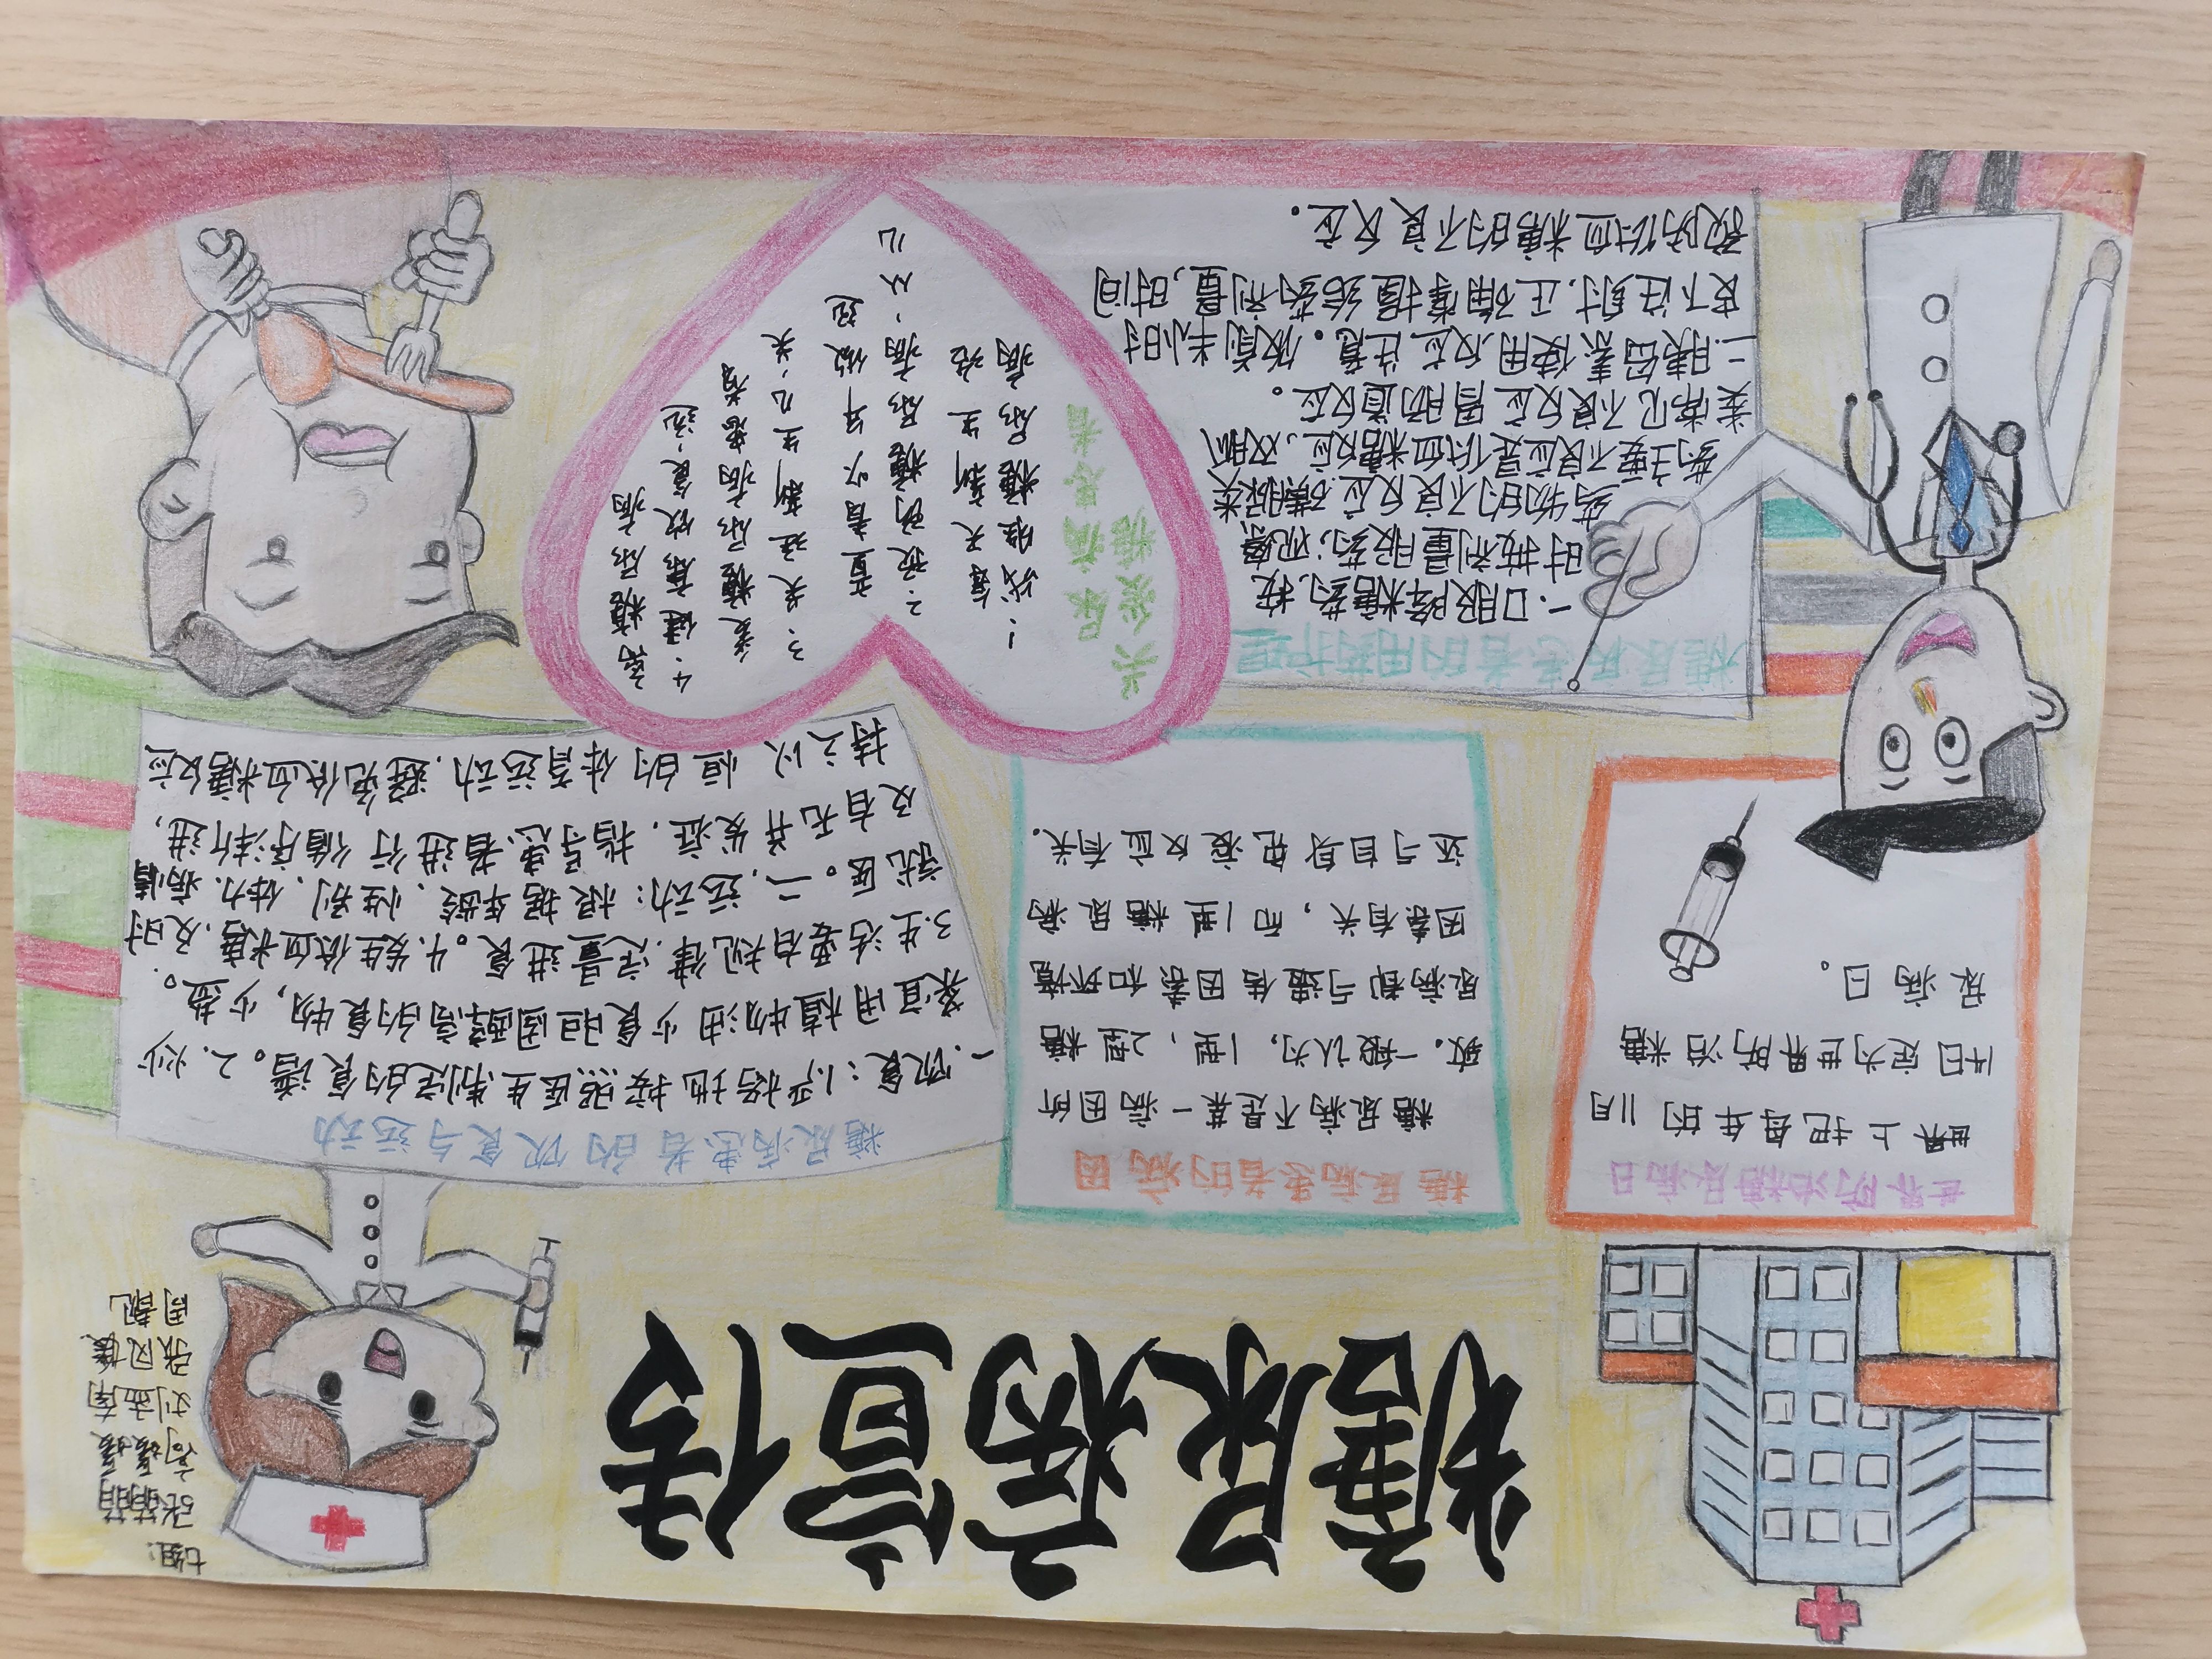 糖尿病宣传
七组:
张萌萌
高媛媛
刘孟南
世界防治糖尿病日
世界上把每年的11月
14日定为世界防治糖
尿病日。
糖尿病患者的病因
糖尿病不是某一病因所
致。一般认为,1型,2型糖
尿病都与遗传因素和环境
因素有关,而1型糖尿病
还与自身免疫反应有关。
糖尿病患者的饮食与运动
一.饮食:1.严格地按照医生制定的食谱。2.炒
菜宜用植物油少食胆固醇高的食物,少盐。
3.生活要有规律.定量进食。4.发生低血糖.及时
就医。二.运动:根据年龄、性别、体力.病情
及有无并发症,指导患者进行循序渐进,
持之以恒的体育运动.避免低血糖反应
糖尿病患者的用药护理
一.口服降糖药.按
时按剂量服药;观察
药物的不良反应.磺脲类
药主要不良反应是低血糖反应,双胍
类常见不良反应胃肠道反应。
二.胰岛素使用.反应注意。饭前半小时
皮下注射.正确掌握给药剂量,时间
预防低血糖的不良反应。
关爱糖
尿病患者
1.战胜糖尿病
每天新生活
2.预防糖尿病、从儿
童青少年做起
3、关注新生儿、关
爱糖尿病患者
4.健康饮食.远
离糖尿病